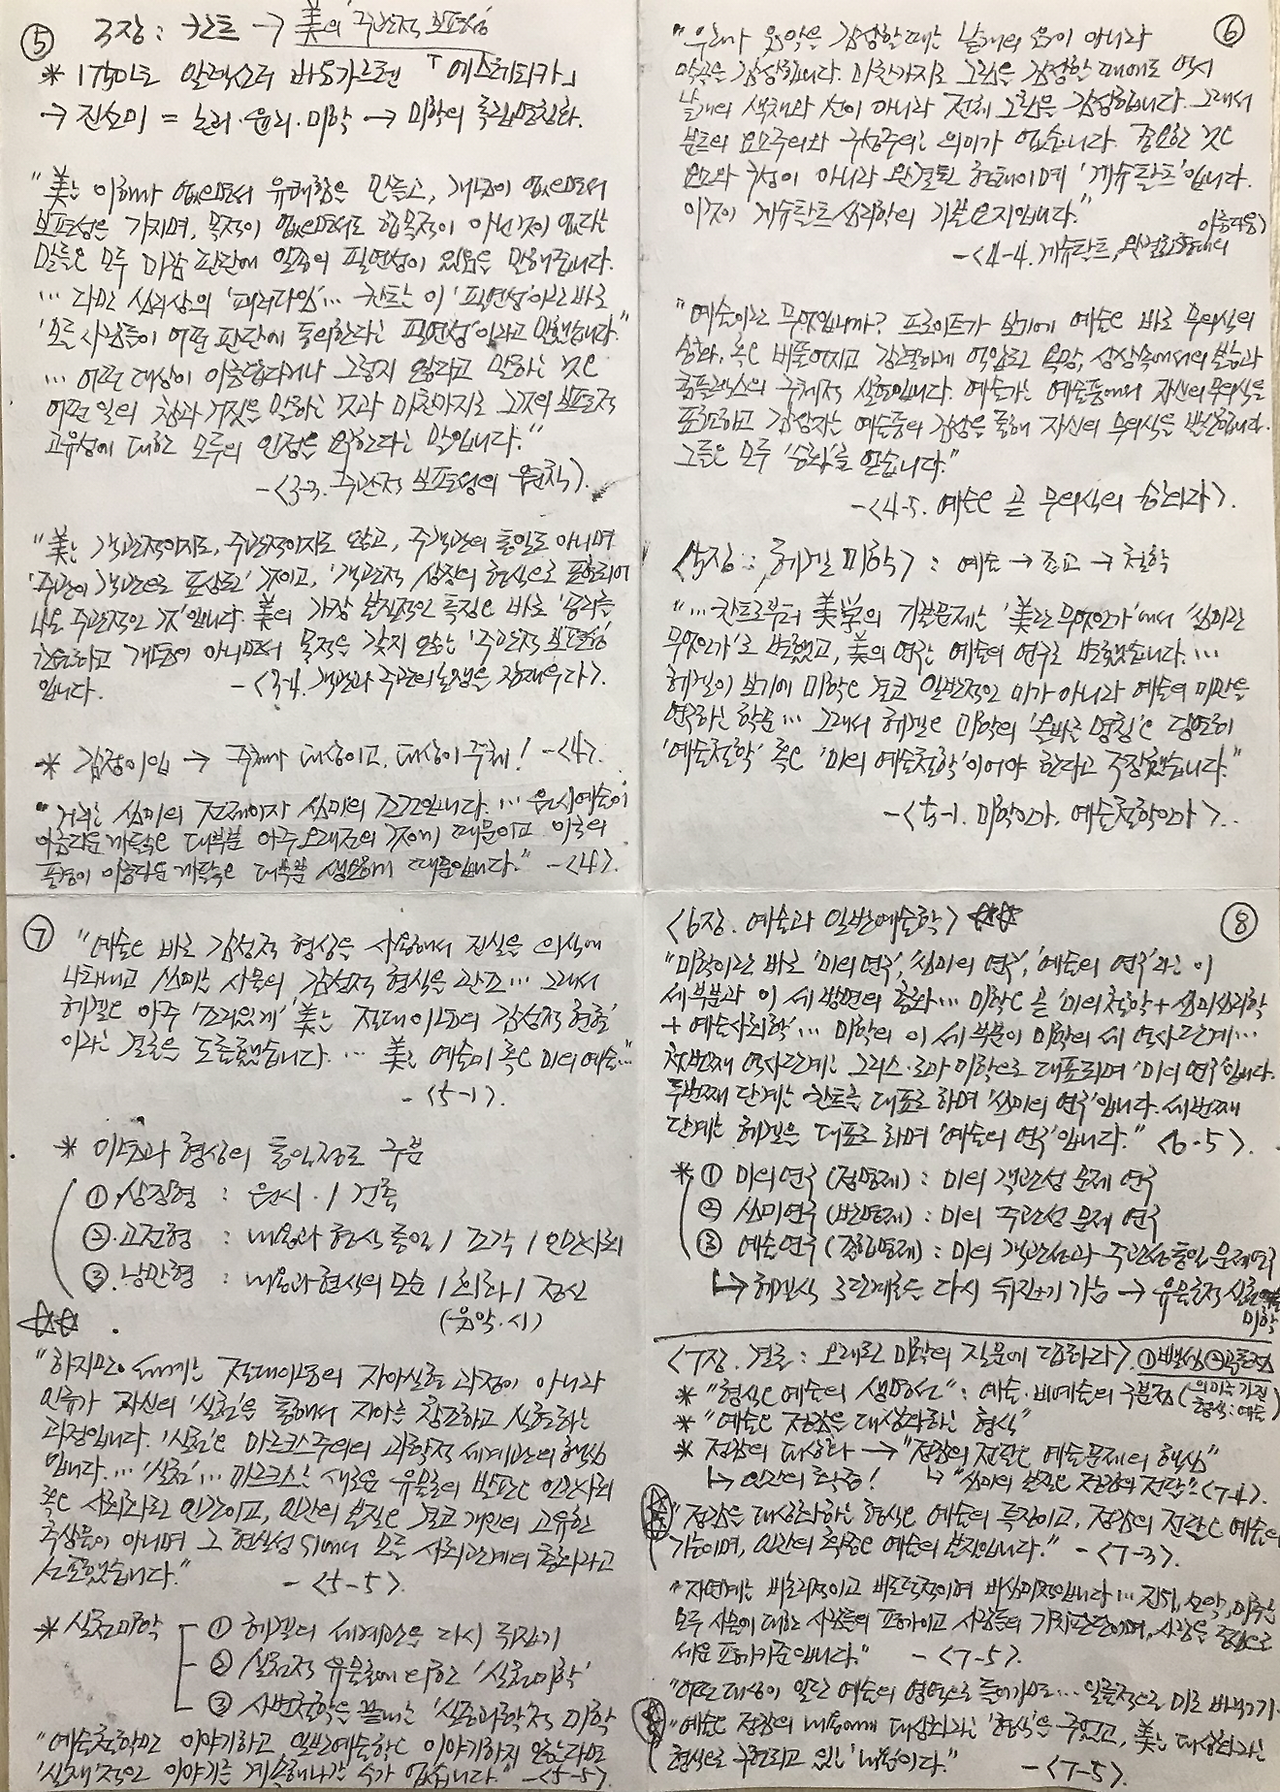 ⑤ 3장: 칸트 → 美의 '주관적 보편성'
* 1750년 알렉산더 바움가르텐 「에스테티카」
→ 진선미 = 논리·윤리·미학 → 미학의 독립명칭화.
"美는 이해가 없으면서 유쾌함을 만들고, 개념이 없으면서
보편성을 가지며, 목적이 없으면서도 합목적이 아닌것이 없다는
말들은 모두 미감 판단에 일종의 필연성이 있음을 말해줍니다.
… 다만 심리상의 '패러다임'… 칸트는 이 '필연성'이란 바로
'모든 사람들이 어떤 판단에 동의한다는 필연성'이라고 말했습니다."
… 어떤 대상이 아름답다거나 그렇지 않다고 말하는 것은
어떤 일의 참과 거짓을 말하는 것과 마찬가지로 그것의 보편적
고유성에 대한 모두의 인정을 요한다는 말입니다."
-<3-3. 주관적 보편성의 원칙>.
"美는 객관적이지도, 주관적이지도 않고, 주객관의 통일도 아니며
'주관이 객관으로 표상된' 것이고, '객관적 성질의 형식으로 표현되어
나온 주관적인 것'입니다. 美의 가장 본질적인 특징은 바로 '공리를
초월하고 개념이 아니면서 목적을 갖지 않는 '주관적 보편성'
입니다. -<3-4. 객관과 주관의 논쟁을 잠재우다>.
* 감정이입 → 주체가 대상이고, 대상이 주체! -<4>.
"거리는 심미의 전제이자 심미의 조건입니다. … 원시예술이
아름다운 까닭은 대부분 아주 오래전의 것이기 때문이고 이국의
풍경이 아름다운 까닭은 대부분 생소하기 때문입니다." -<4>.
⑥
"우리가 음악을 감상할때는 낱개의 음이 아니라
악곡을 감상합니다. 마찬가지로 그림을 감상할 때에도 역시
낱개의 색채와 선이 아니라 전체 그림을 감상합니다. 그래서
분트의 요소주의와 구성주의는 의미가 없습니다. 중요한 것은
요소와 구성이 아니라 완결된 형태이며 '게슈탈트'입니다.
이것이 게슈탈트심리학의 기본요지입니다."
-<4-4. 게슈탈트, 완결된 형태의 아름다움>
"예술이란 무엇입니까? 프로이트가 보기에 예술은 바로 무의식의
승화, 혹은 비틀어지고 강렬하게 억압된 욕망, 상상속에서의 본능과
콤플렉스의 구체적 실현입니다. 예술가는 예술품에서 자신의 무의식을
표현하고 감상자는 예술품의 감상을 통해 자신의 무의식을 발산합니다.
그들은 모두 '승화'를 얻습니다."
-<4-5. 예술은 곧 무의식의 승화다>.
<5장: 헤겔 미학> : 예술 → 종교 → 철학
"…칸트로부터 美学의 기본문제는 '美란 무엇인가'에서 '심미란
무엇인가'로 변했고, 美의 연구는 예술의 연구로 변했습니다. …
헤겔이 보기에 미학은 결코 일반적인 미가 아니라 예술의 미만을
연구하는 학문… 그래서 헤겔은 미학의 '올바른 명칭'은 당연히
'예술철학' 혹은 '미의 예술철학'이어야 한다고 주장했습니다."
-<5-1. 미학인가, 예술철학인가>.
⑦ "예술은 바로 감성적 형상을 사용해서 진실을 의식에
나타내고 심미는 사물의 감성적 형식을 관조… 그래서
헤겔은 아주 '조리있게' 美는 '절대이념의 감성적 현현'
이라는 결론을 도출했습니다. … 美는 예술미 혹은 미의 예술…"
-<5-1>.
* 이념과 형상의 통일정도 구분
① 상징형 : 원시 · / 건축
② 고전형 : 내용과 형식 통일 / 조각 / 인간사회
③ 낭만형 : 내용과 형식의 모순 / 회화 / 정신
(음악·시)
"하지만 세계는 절대이념의 자아실현 과정이 아니라
인류가 자신의 '실천'을 통해서 자아를 창조하고 실현하는
과정입니다. '실천'은 마르크스주의의 과학적 세계관의 핵심
입니다. … '실천'… 마르크스는 새로운 유물론의 발판은 인간사회
혹은 사회화된 인간이고, 인간의 본질은 결코 개인의 고유한
추상물이 아니며 그 현실성 위에서 모든 사회관계의 총화라고
선포했습니다." -<5-5>.
* 실천미학 ① 헤겔의 세계관을 다시 뒤집기
② 실천적 유물론에 의한 '실천미학'
③ 사변철학을 끝내는 '실증과학'적 미학
"예술철학만 이야기하고 일반예술학은 이야기하지 않는다면
'실재'적인 이야기를 계속해나갈 수가 없습니다." -<5-5>
<6장. 예술과 일반예술학> ⑧
"미학이란 바로 '미의 연구', '심미의 연구', '예술의 연구'라는 이
세 부분과 이 세 방면의 총화… 미학은 곧 '미의철학 + 심미심리학
+ 예술사회학'… 미학의 이 세 부문이 미학의 세 역사단계…
첫번째 역사단계는 그리스·로마 미학으로 대표되며 '미의 연구'입니다.
두번째 단계는 칸트를 대표로 하며 '심미의 연구'입니다. 세번째
단계는 헤겔을 대표로 하며 '예술의 연구'입니다." <6-5>.
* ① 미의연구 (정명제) : 미의 객관성 문제 연구
② 심미연구 (반명제) : 미의 주관성 문제 연구
③ 예술연구 (합명제) : 미의 객관성과 주관성 통일 문제연구
↳ 헤겔식 3단계론 다시 뒤집기 가능 → 유물론적 실천
미학
<7장. 결론: 오래된 미학의 질문에 답하다>.
* "형식은 예술의 생명선" : 예술·비예술의 구분점 (의미는 가짐 형식: 예술)
* "예술은 정감을 대상화하는 형식"
* 정감의 대상화 → "정감의 전달은 예술문제의 핵심"
↳ 인간의 확증! ↳ "심미의 본질은 정감의 전달" <7-4>.
"정감을 대상화하는 형식은 예술의 특징이고, 정감의 전달은 예술의
기능이며, 인간의 확증은 예술의 본질입니다." -<7-3>.
"자연계는 비논리적이고 비도덕적이며 비심미적입니다… 진위, 선악, 미추는
모두 사물에 대한 사람들의 평가이고 사람들의 가치판단이며, 사람을 중심으로
세운 평가기준입니다." -<7-5>.
"어떤 대상이 일단 예술의 영역으로 들어가면… 일률적으로 미로 바뀌기
"예술은 정감의 내용에게 대상화라는 '형식'을 주었고, 美는 대상화라는
형식으로 구현되고 있는 '내용'이다." -<7-5>